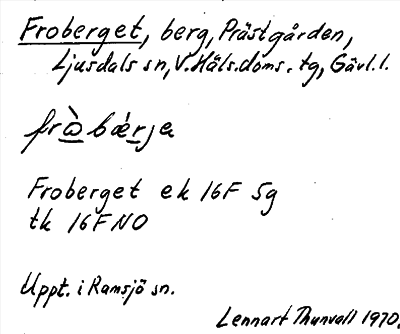 Froberget, berg, Prästgården,
Ljusdals sn, V. Häls. doms. tg, Gävl. l.
frò̲bǽr̲ja
Froberget ek 16F 5g
tk 16F NO
Uppt. i Ramsjö sn.
Lennart Thunvall 1970.